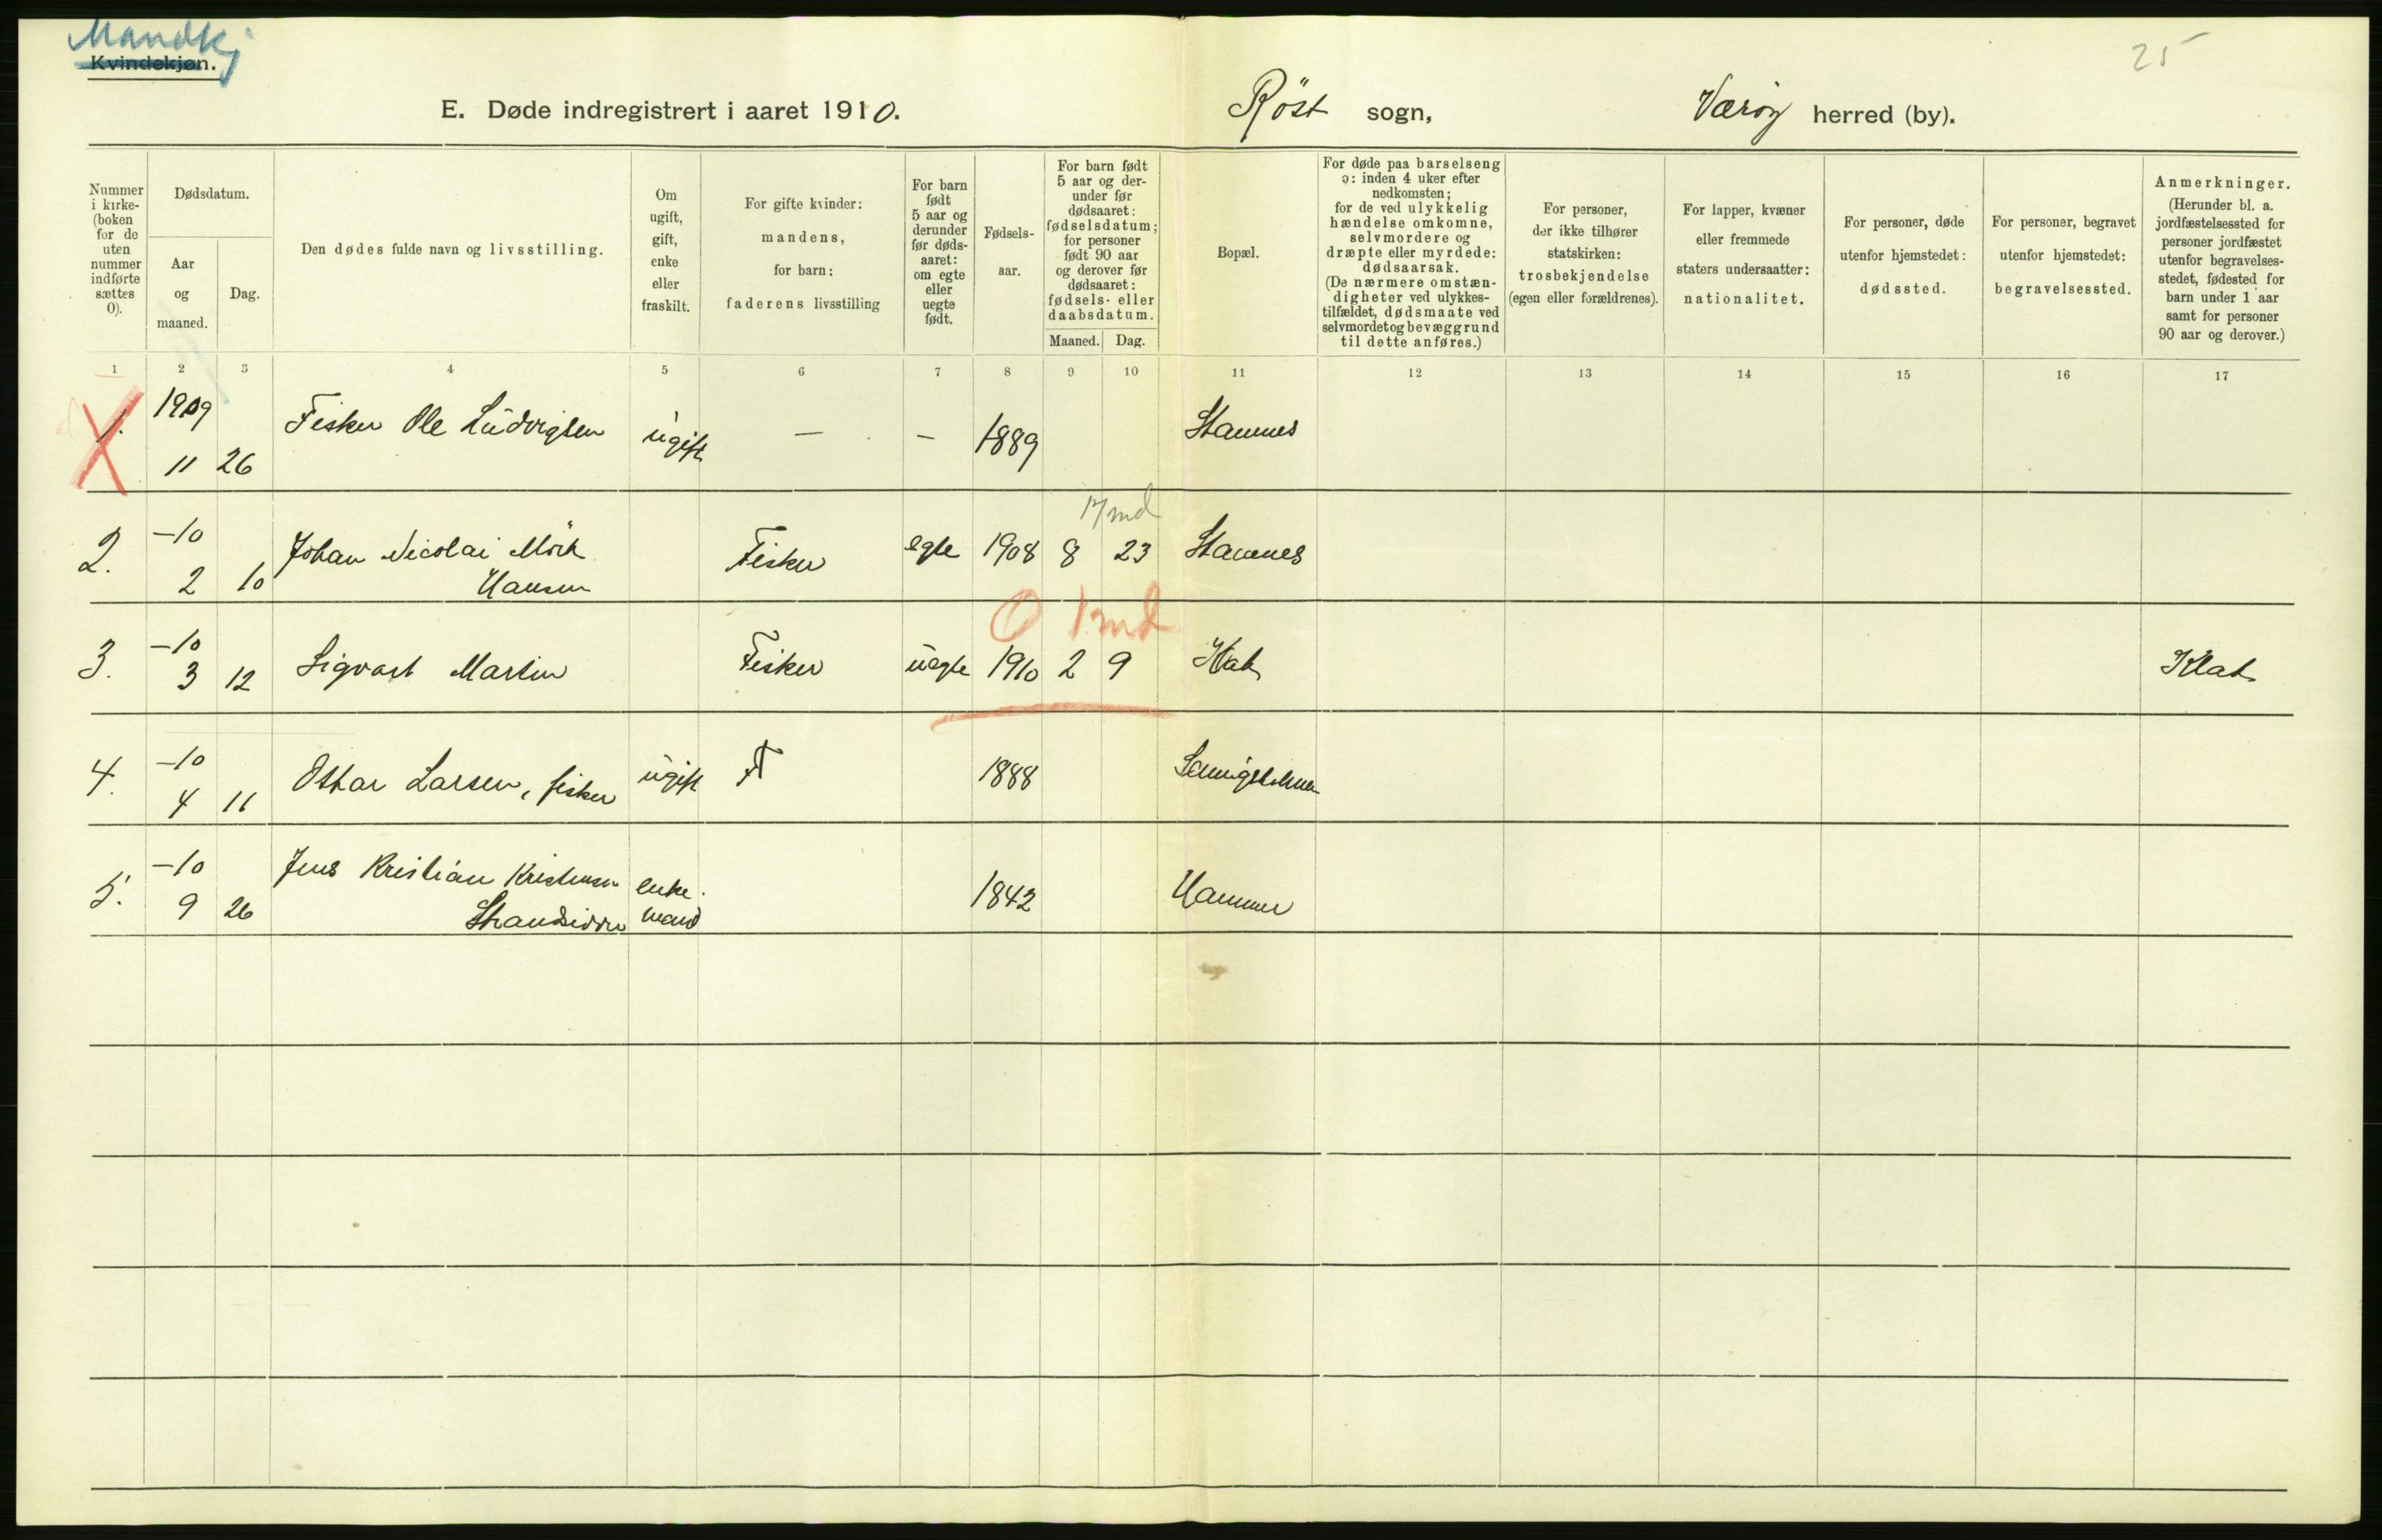 Mandkj
Kvindekjøn.
25
E. Døde indregistrert i aaret 1910.
Röst sogn,
Værøy herred (by).
Nummer
i kirke-
(boken
for de
uten
nummer
indførte
sættes
0).
Dødsdatum.
Aar
og
maaned.
Dag.
Den dødes fulde navn og livsstilling.
Om
ugift,
gift,
enke
eller
fraskilt.
For gifte kvinder:
mandens,
for barn:
faderens livsstilling
For barn
født
5 aar og
derunder
før døds-
aaret:
om egte
eller
uegte
født.
Fødsels-
aar.
For barn født
5 aar og der-
under før
dødsaaret:
fødselsdatum;
for personer
født 90 aar
og derover før
dødsaaret:
fødsels- eller
daabsdatum.
Maaned. Dag.
Bopæl.
For døde paa barselseng
ɔ: inden 4 uker efter
nedkomsten;
for de ved ulykkelig
hændelse omkomne,
selvmordere og
dræpte eller myrdede:
dødsaarsak.
(De nærmere omstæn-
digheter ved ulykkes-
tilfældet, dødsmaate ved
selvmordet og bevæggrund
til dette anføres.)
For personer,
der ikke tilhører
statskirken:
trosbekjendelse
(egen eller forældrenes).
For lapper, kvæner
eller fremmede
staters undersaatter:
nationalitet.
For personer, døde
utenfor hjemstedet:
dødssted.
For personer, begravet
utenfor hjemstedet:
begravelsessted.
Anmerkninger.
(Herunder bl. a.
jordfæstelsessted for
personer jordfæstet
utenfor begravelses-
stedet, fødested for
barn under 1 aar
samt for personer
90 aar og derover.)
1 2 3 4 5 6 7 8 9 10 11 12 13 14 15 16 17
1. 1909 Fisker Ole Ludvigsen ugift — — 1889 Stavnes
11 26
17 md
2. -10 Johan Nicolai Mörk Fisker egte 1908 8 23 Stavnes
2 10 Hansen
0 1 md
3. -10 Sigvart Martin Fisker uegte 1910 2 9 Klak Klak
3 12
4. -10 Oskar Larsen, fisker ugift F 1888
4 11
5. -10 Jens Kristian Kristensen enke- 1842 Hammer
9 26 Strandsidder mand